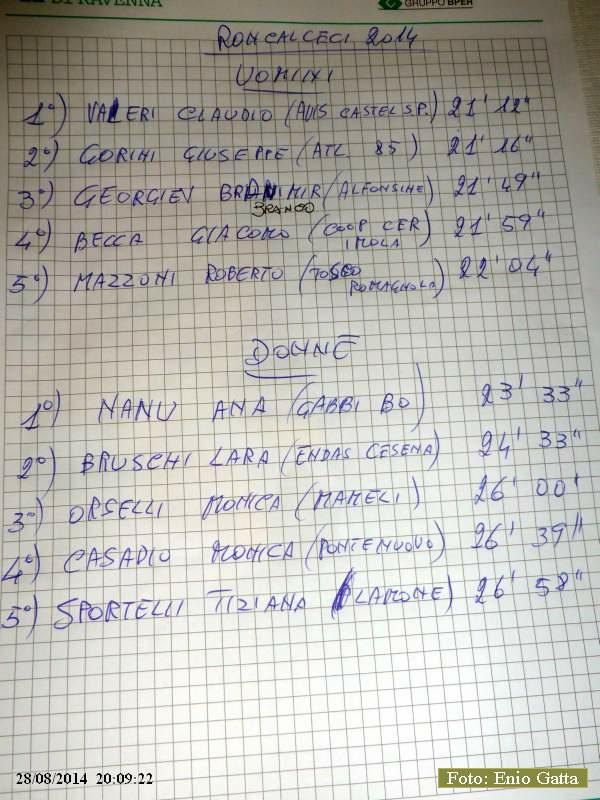 DI RAVENNA
GRUPPO BPER
RONCALCECI 2014
UOMINI
1°) VALERI CLAUDIO (AVIS CASTEL S.P.) 21' 12"
2°) GORINI GIUSEPPE (ATL 85) 21' 16"
3°) GEORGIEV BRANIMIR (ALFONSINE) 21' 49"
BRANCO
4°) BECCA GIACOMO (COOP CER 21' 59"
IMOLA)
5°) MAZZONI ROBERTO (TOSCO 22' 04"
ROMAGNOLA)
DONNE
1°) NANU ANA (GABBI BO) 23' 33"
2°) BRUSCHI LARA (ENDAS CESENA) 24' 33"
3°) ORSELLI MONICA (MAMELI) 26' 00'
4°) CASADIO MONICA (PONTENUOVO) 26' 39"
5°) SPORTELLI TIZIANA (LAMONE) 26' 58"
28/08/2014 20:09:22
Foto: Enio Gatta